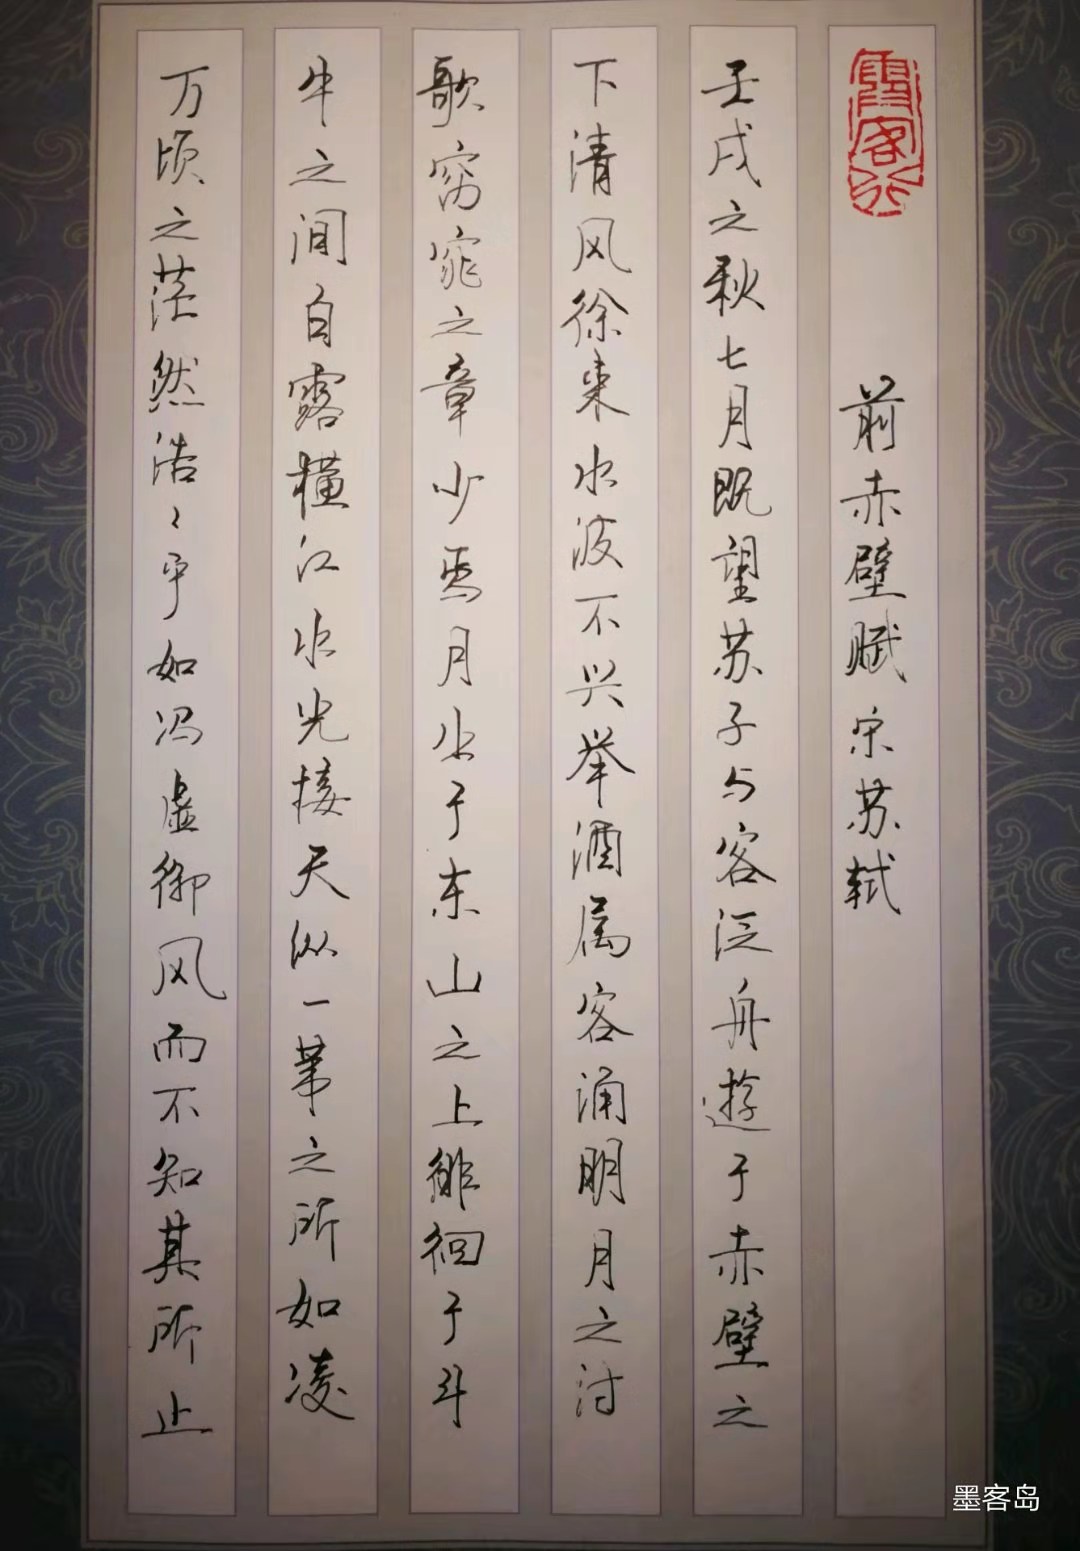 前赤壁赋 宋苏轼
壬戌之秋七月既望苏子与客泛舟遊于赤壁之
下清风徐来水波不兴举酒属客诵明月之诗
歌窈窕之章少焉月出于东山之上徘徊于斗
牛之间白露横江水光接天纵一苇之所如凌
万顷之茫然浩々乎如冯虚御风而不知其所止
墨客岛